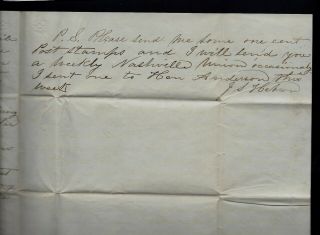 P. S. Please send me some one cent
Post stamps and I will send you
a weekly Nashville Union occasionaly
I sent one to Hon Anderson this
week